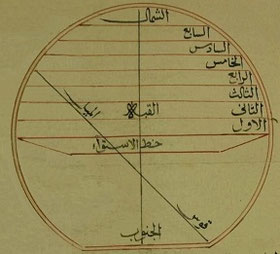 الشمال
السابع
السادس
الخامس
الرابع
الثالث
الثاني
الاول
خط الاستواء
الجنوب